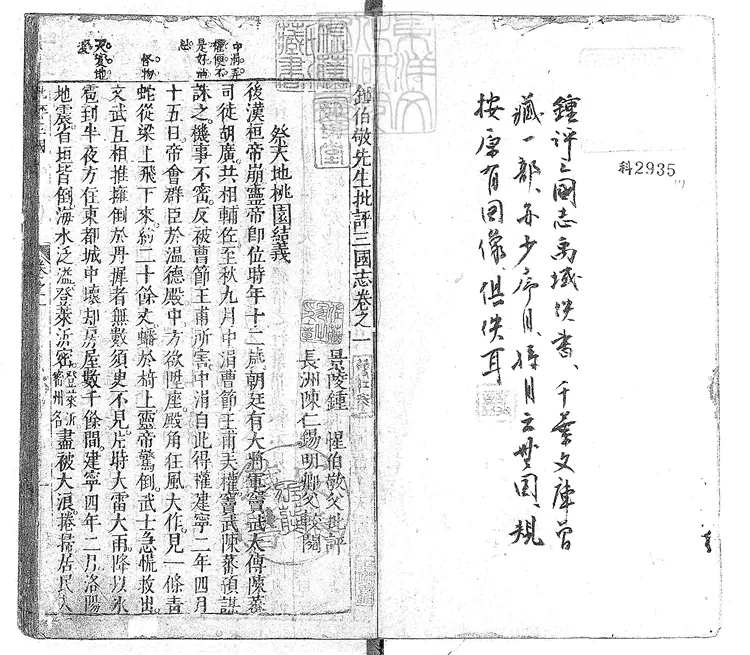 科2935
鍾評三國志禹域佚書、千葉文庫曾
藏一部、亦少序目、目云無圖、規
按原有圖像俱佚耳
鍾伯敬先生批評三國志卷之一
景陵鍾 惺伯敬父批評
長洲陳仁錫明卿父較閱
祭天地桃園結義
後漢桓帝崩靈帝卽位時年十二歲朝廷有大將軍竇武太傅陳蕃
司徒胡廣共相輔佐至秋九月中涓曹節王甫弄權竇武陳蕃預謀
中涓弄
權便不
是好消
息
誅之機事不密反被曹節王甫所害中涓自此得權建寧二年四月
十五日帝會群臣於溫德殿中方欲陞座殿角狂風大作見一條青
怪物
蛇從梁上飛下來約二十餘丈蟠於椅上靈帝驚倒武士急慌救出
文武互相推擁倒於丹墀者無數須臾不見片時大雷大雨降以冰
天災地
變
雹到半夜方住東都城中壞却房屋數千餘間建寧四年二月洛陽
地震省垣皆倒海水泛溢登萊沂密登萊沂密州名盡被大浪捲掃居民入